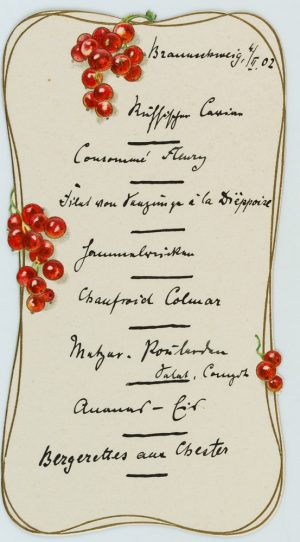 Braunschweig, 4/II. 02
Russischer Caviar
Consommé Fleury
Filet von Seezunge à la Diéppoise
Hammelrücken
Chaufroid Colmar
Metzer-Poularden
Salat, Compott
Ananas – Eis
Bergerettes aux Chester